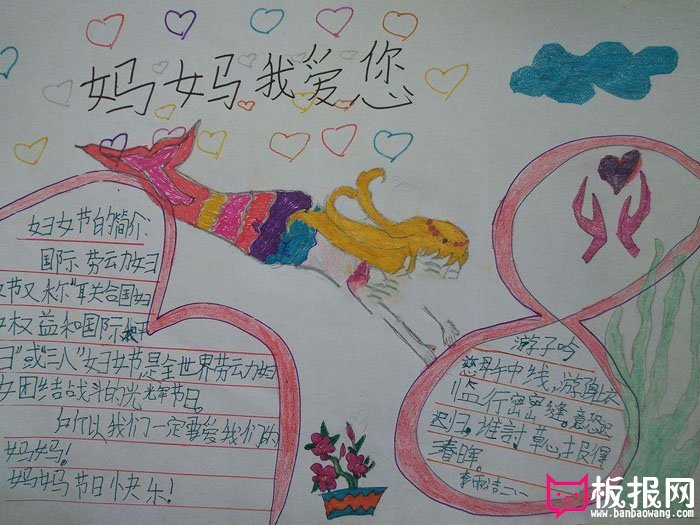 妈妈我爱您
妇女节的简介
国际劳动妇
女节又称"联合国妇
女权益和国际和平
日"或"三八"妇女节是全世界劳动妇
女团结战斗的光辉节日。
所以我们一定要爱我们的
妈妈!
妈妈节日快乐!
游子吟
慈母手中线,游子身上衣
临行密密缝。意恐迟
迟归。谁
春晖。
板报网
www.banbaowang.com